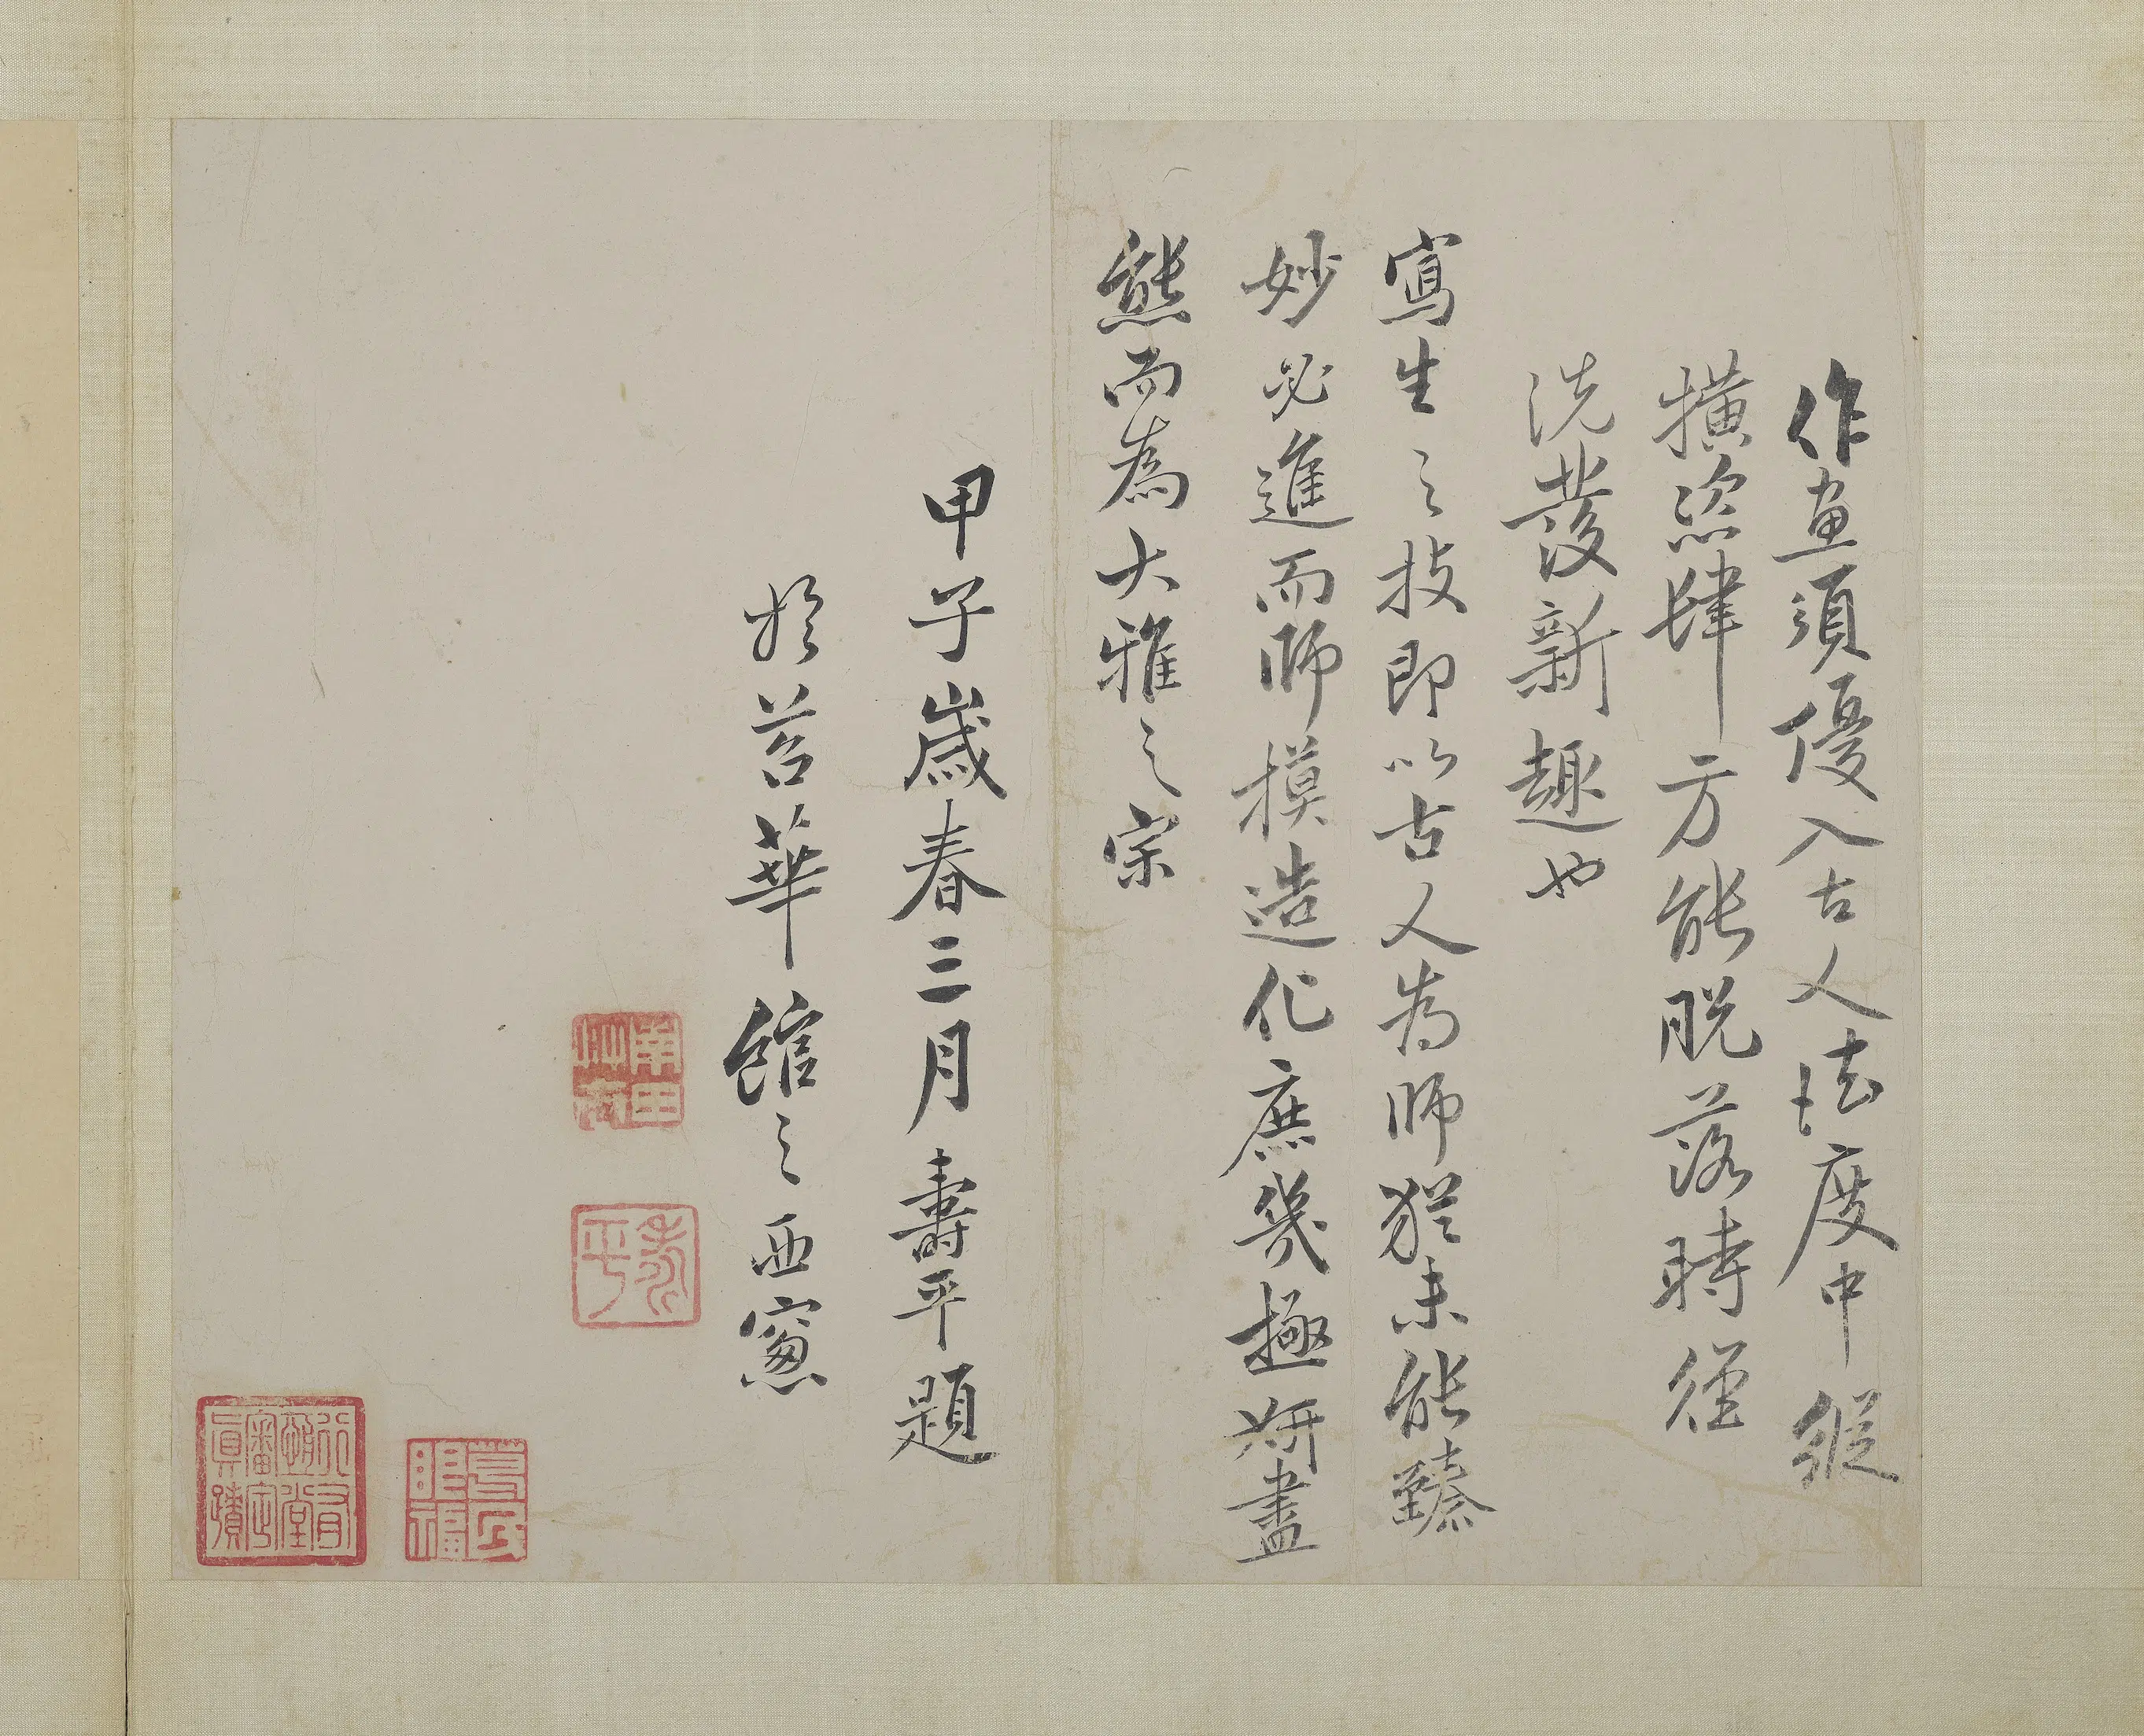 作畫須優入古人法度中縱
橫恣肆方能脫落時徑
洗發新趣也
寫生之技即以古人為師猶未能臻
妙必進而師摸造化庶幾極妍盡
態而為大雅之宗
甲子歲春三月壽平題
於苕華館之西窻
壽平